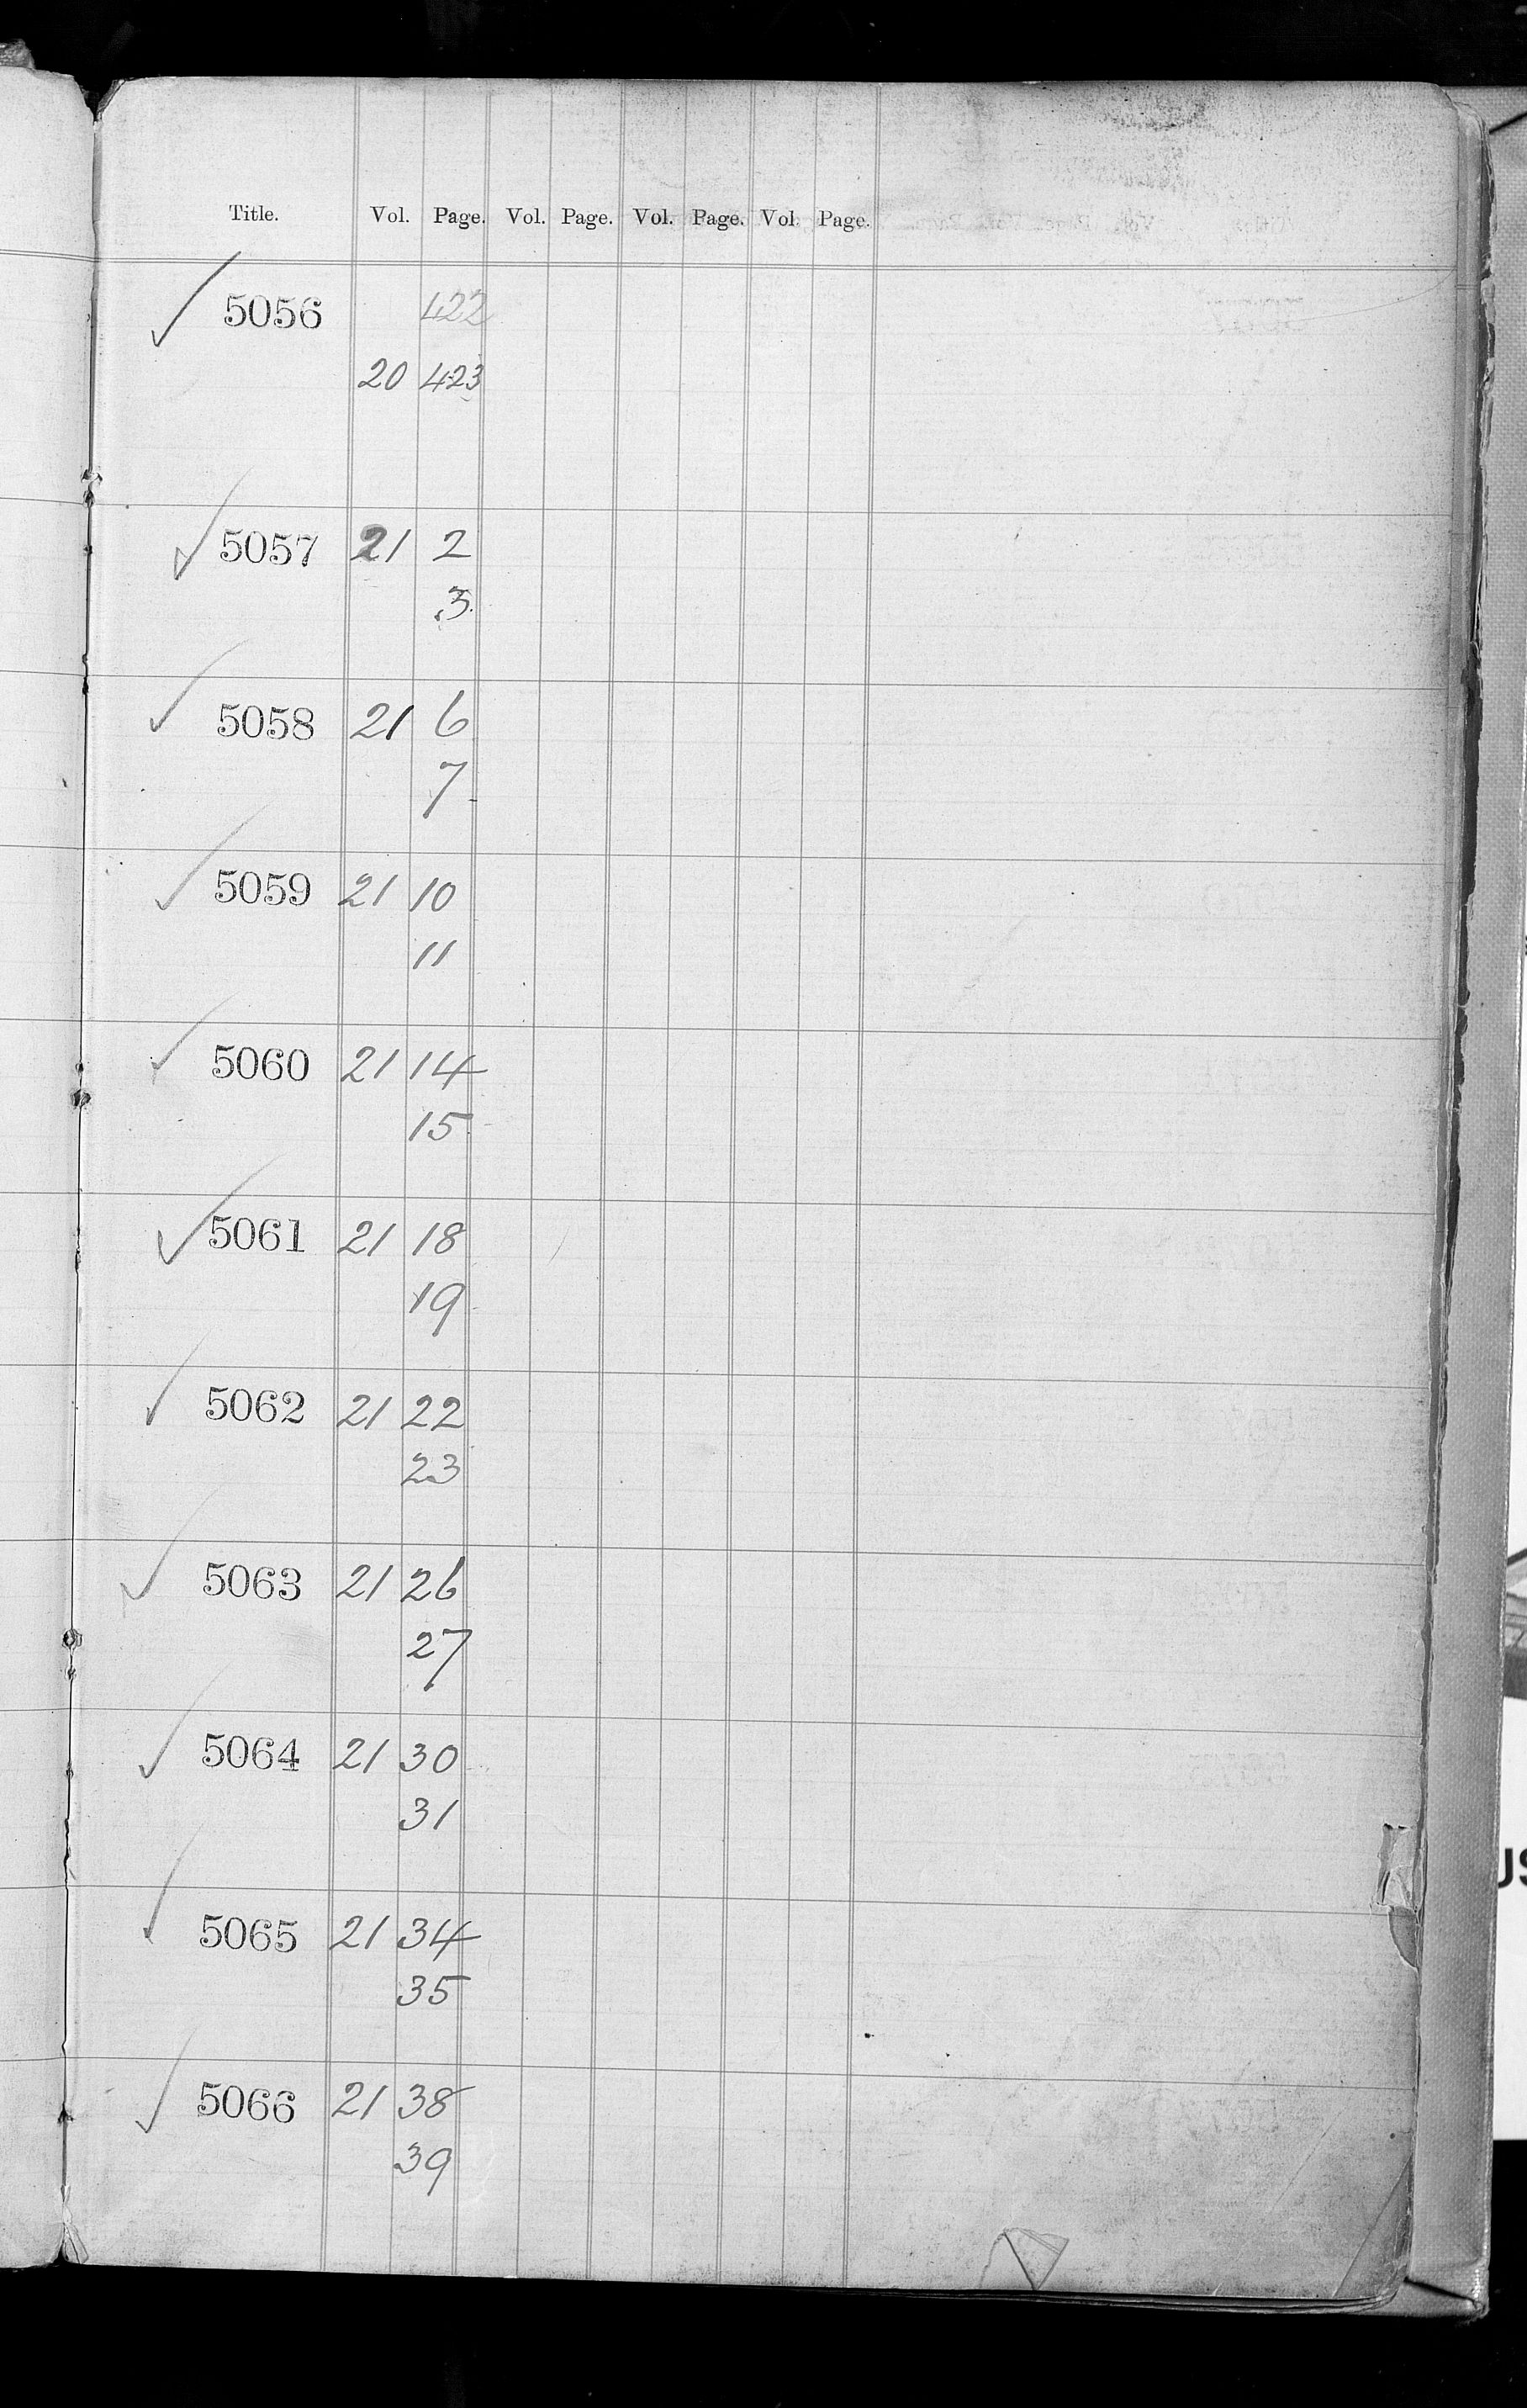 Title. Vol. Page. Vol. Page. Vol. Page. Vol. Page.
✓ 5056 422
20 423
✓ 5057 21 2
3
✓ 5058 21 6
7
✓ 5059 21 10
11
✓ 5060 21 14
15
✓ 5061 21 18
19
✓ 5062 21 22
23
✓ 5063 21 26
27
✓ 5064 21 30
31
✓ 5065 21 34
35
✓ 5066 21 38
39
US